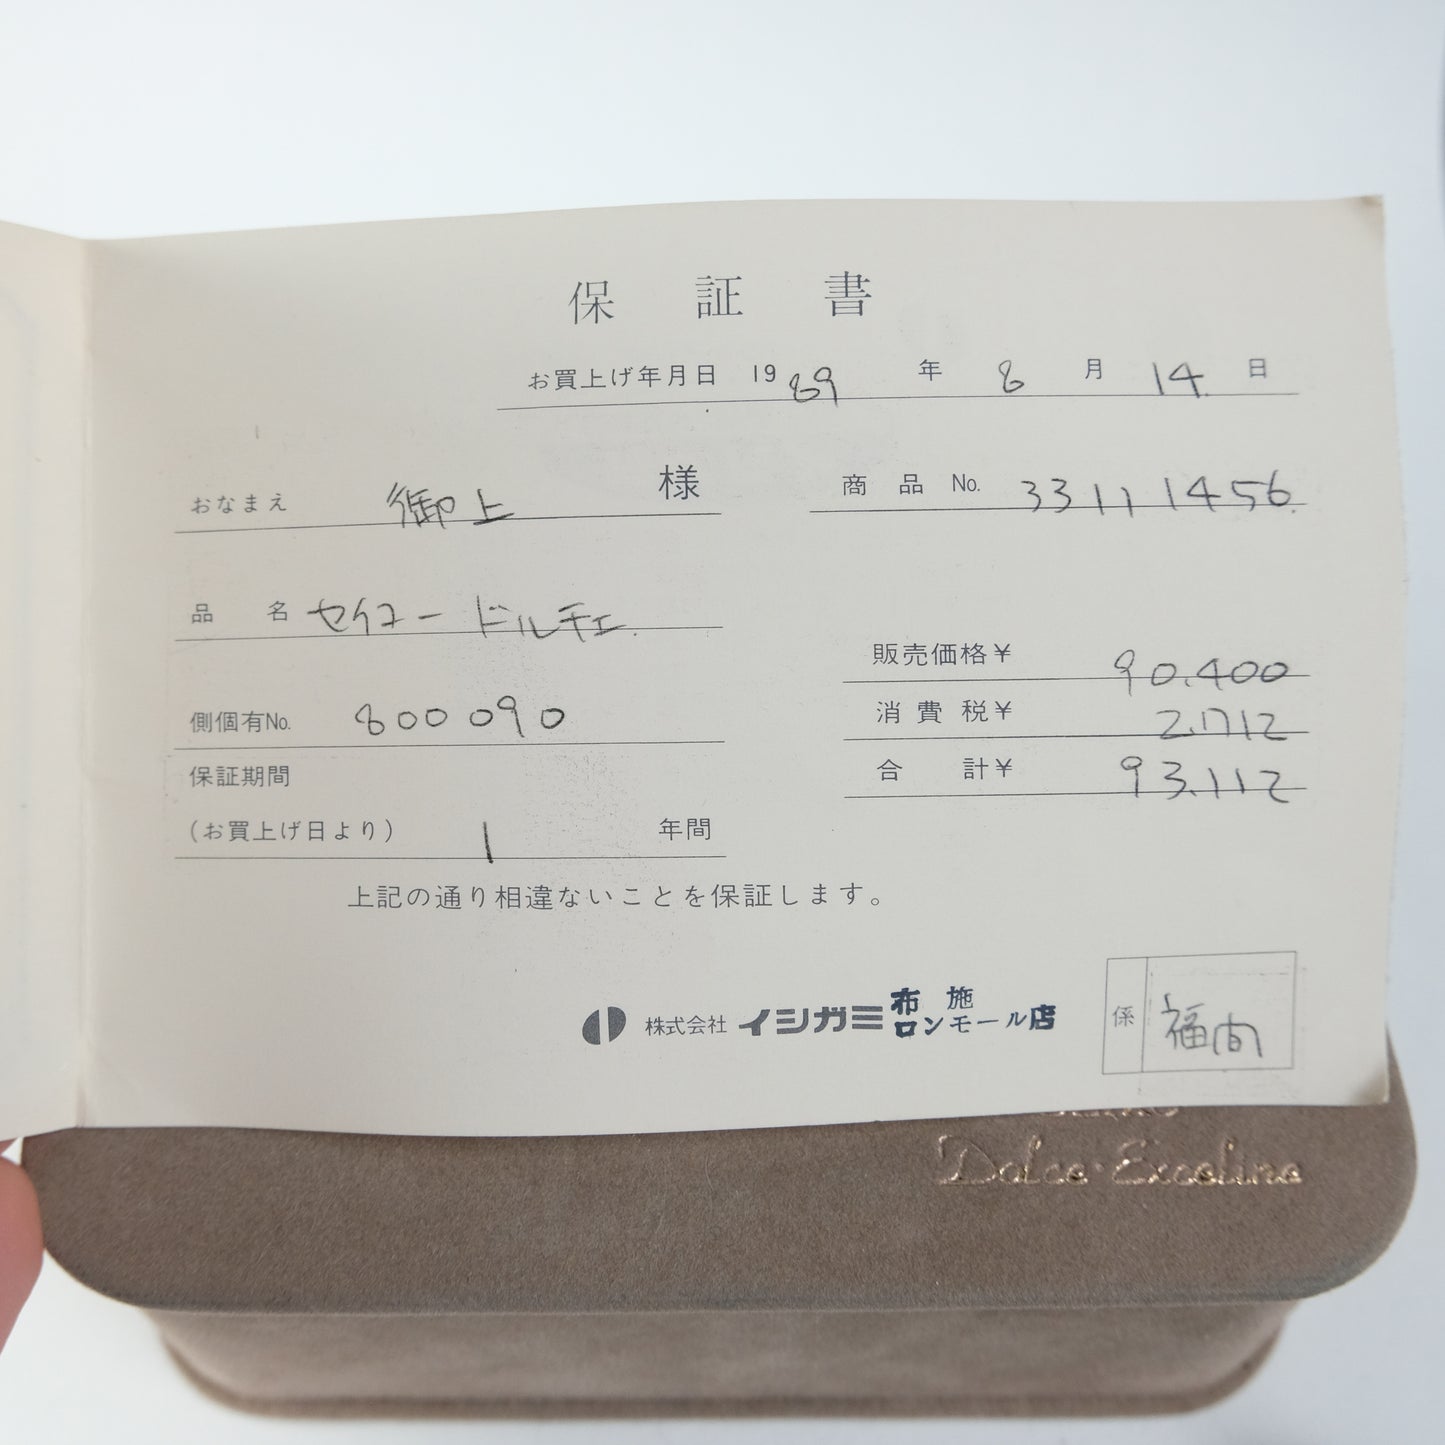 保証書
お買上げ年月日 1989年8月14日
おなまえ 御上 様
商品 No. 33111456.
品名 セイコー ドルチェ.
販売価格¥ 90.400
側個有No. 800090
消費税¥ 2.712
保証期間
合計¥ 93.112
(お買上げ日より) 1 年間
上記の通り相違ないことを保証します。
株式会社 イシガミ 布施
ロンモール店
係 福間
Dolce·Exceline